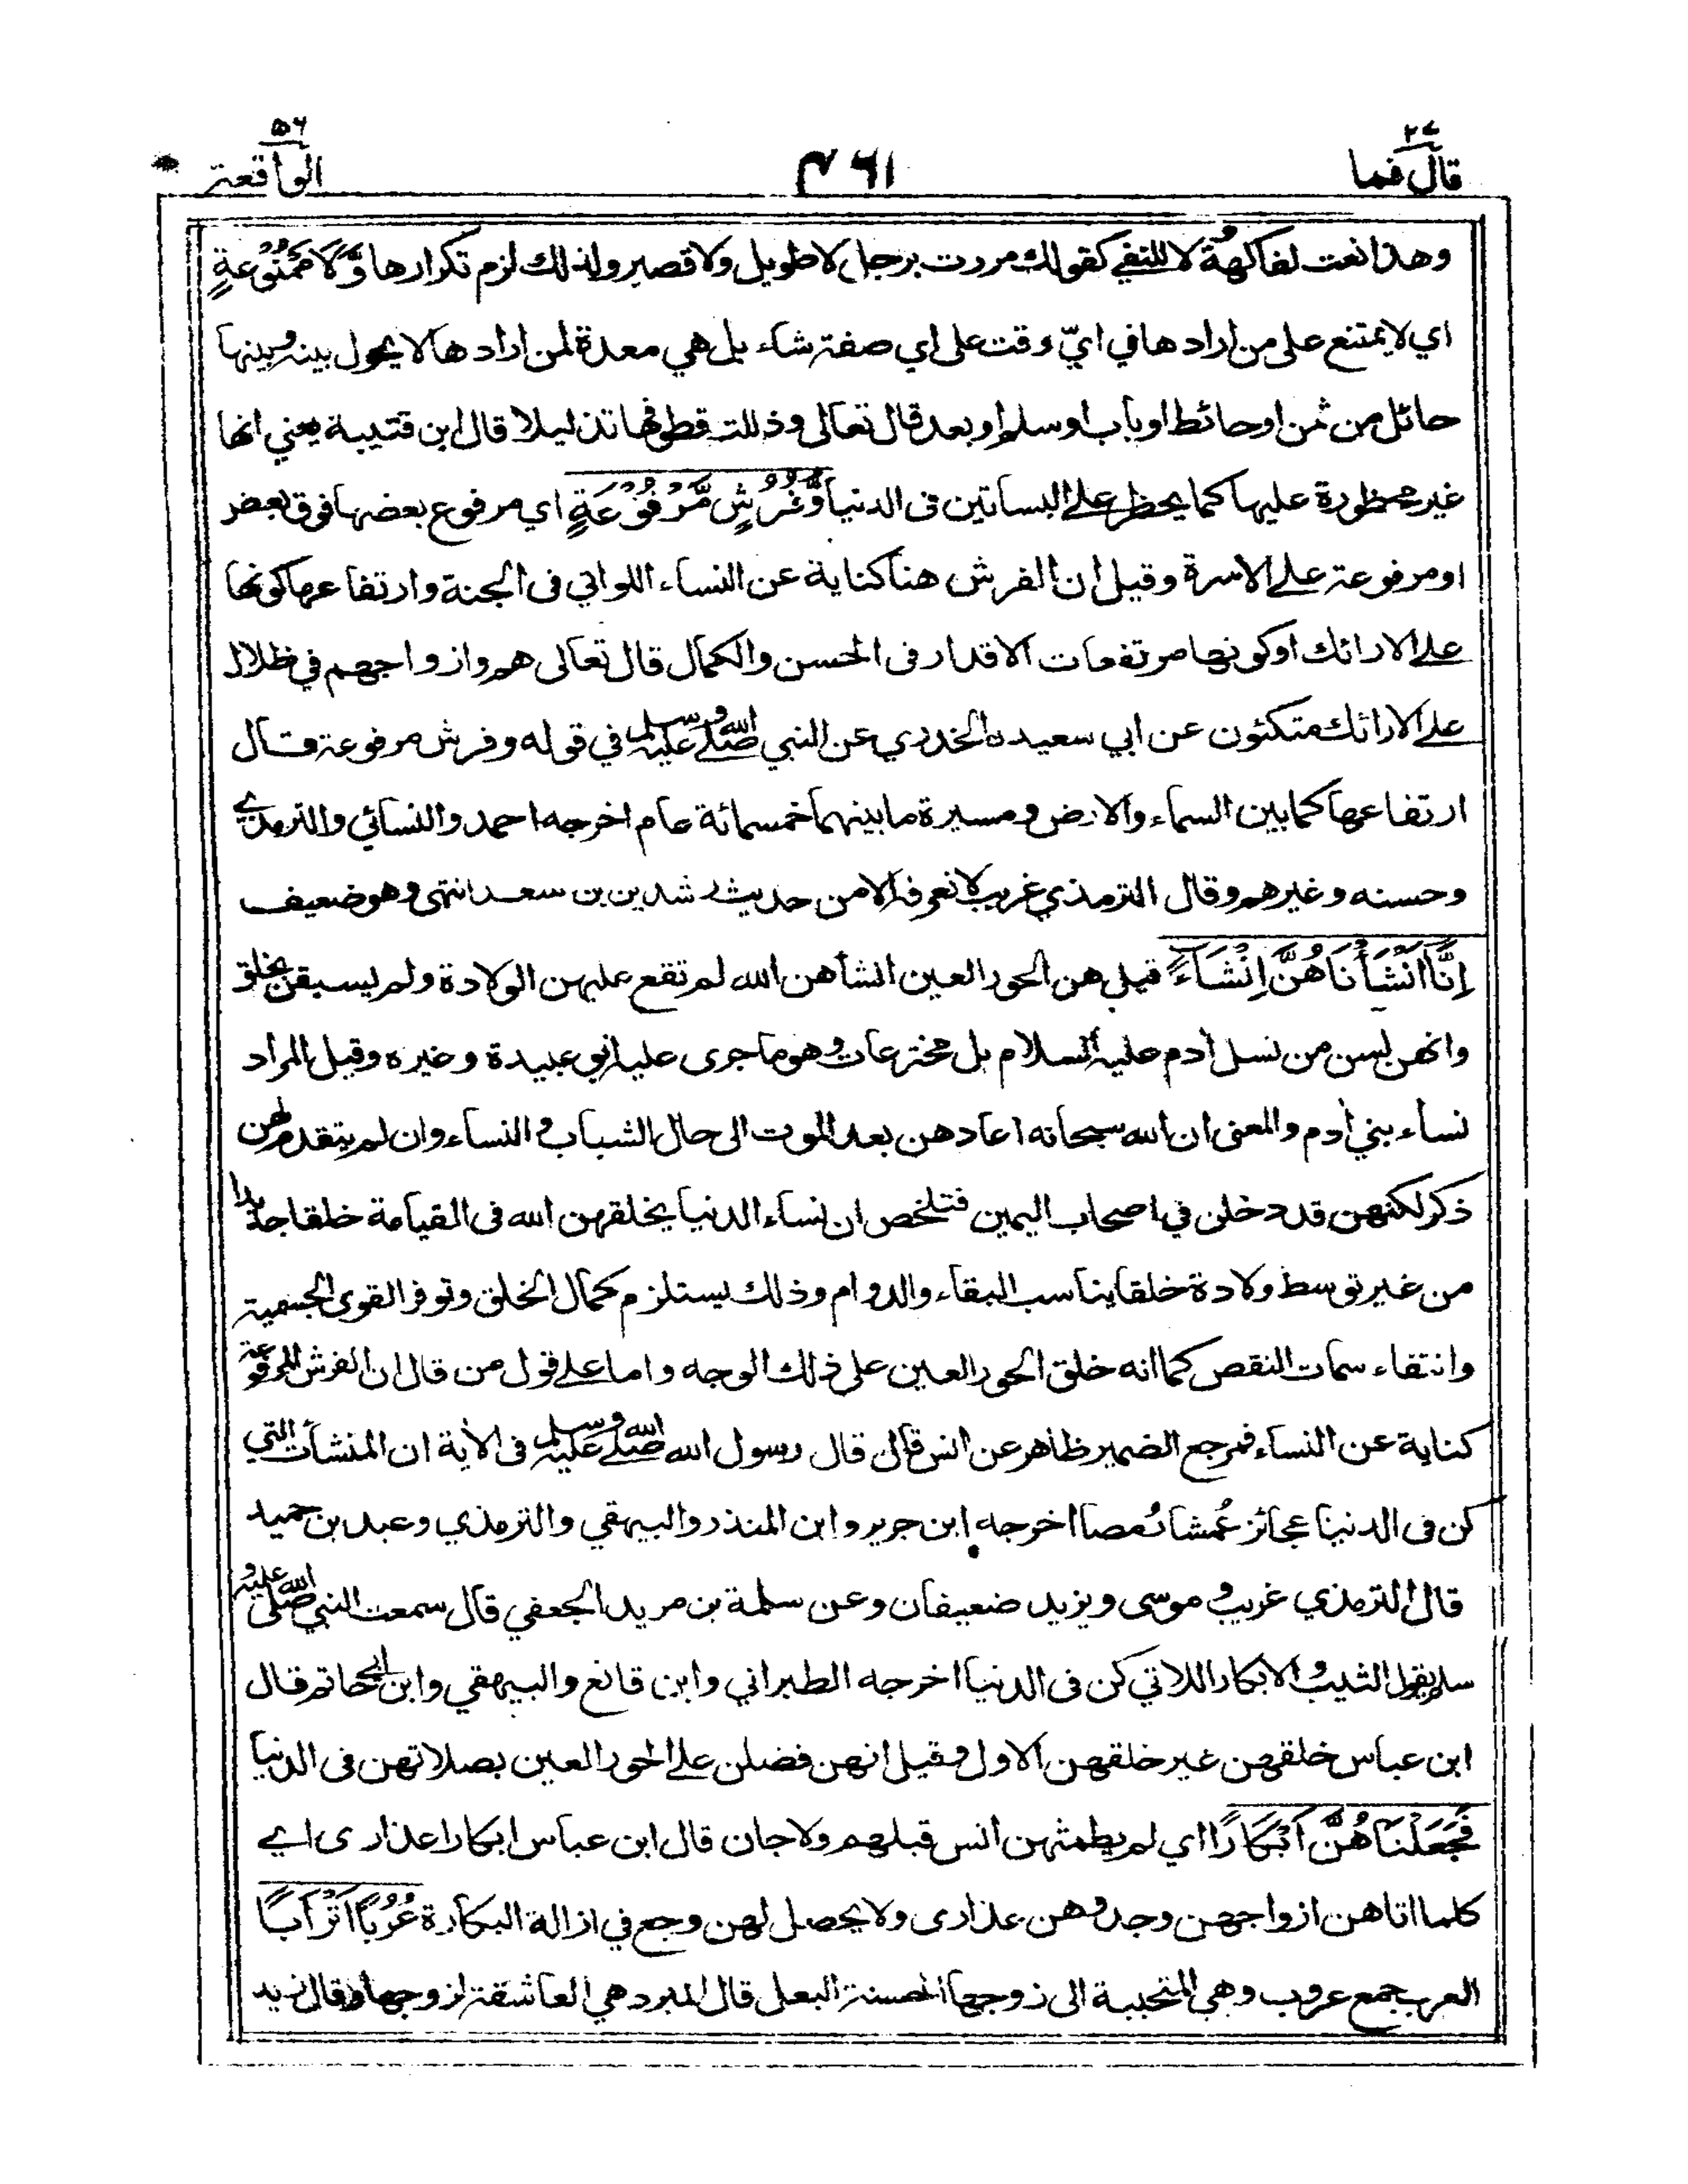 قال فما ٢٧
٤٦١
الواقعة ٥٦
وهذا نعت لفاكهة ولا للنفي كقولك مررت برجل لا طويل ولا قصير ولذلك لزم تكرارها وَّلَا مَمْنُوْعَةٍ
اي لا يمتنع على من ارادها في ايّ وقت على اي صفة شاء بل هي معدة لمن ارادها لا يحول بينه وبينها
حائل من ثمن او حائط او باب او سلم او بعد قال تعالى وذللت قطوفها تذليلا قال ابن قتيبة يعني انها
غير محظورة عليها كما يحظر على البساتين فى الدنيا وَّفُرُشٍ مَّرْفُوْعَةٍ اي مرفوع بعضها فوق بعض
او مرفوعة على الاسرة وقيل ان الفرش هنا كناية عن النساء اللواتي فى الجنة وارتفاعها كونها
على الارائك او كونها مرتفعات الاقدار فى الحسن والكمال قال تعالى هم وازواجهم في ظلال
على الارائك متكئون عن ابي سعيد الخدري عن النبي صلى الله عليه وسلم في قوله وفرش مرفوعة قال
ارتفاعها كما بين السماء والارض ومسيرة ما بينهما خمسمائة عام اخرجه احمد والنسائي والترمذي
وحسنه وغيرهم وقال الترمذي غريب لا نعرفه الا من حديث رشدين بن سعد انتهى وهو ضعيف
اِنَّا اَنْشَأْنَاهُنَّ اِنْشَاءً قيل هن الحور العين انشأهن الله لم تقع عليهن الولادة ولم يسبقن بخلق
وانهن ليسن من نسل أدم عليه السلام بل مخترعات وهو ما جرى عليه ابو عبيدة وغيره وقيل المراد
نساء بني أدم والمعنى ان الله سبحانه اعادهن بعد الموت الى حال الشباب والنساء وان لم يتقدم لهن
ذكر لكنهن قد دخلن في اصحاب اليمين فتلخص ان نساء الدنيا يخلقهن الله فى القيامة خلقا جديدا
من غير توسط ولادة خلقا يناسب البقاء والدوام وذلك يستلزم كمال الخلق وتوفر القوى الجسمية
وانتفاء سمات النقص كما انه خلق الحور العين على ذلك الوجه واما على قول من قال ان الفرش المرفوعة
كناية عن النساء فمرجع الضمير ظاهر عن انس قال قال رسول الله صلى الله عليه وسلم فى الأية ان المنشأت التي
كن فى الدنيا عجائز عُمشا رُمصا اخرجه ابن جرير وابن المنذر والبيهقي والترمذي وعبد بن حميد
قال الترمذي غريب وموسى ويزيد ضعيفان وعن سلمة بن مريد الجعفي قال سمعت النبي صلى الله عليه و
سلم يقول الثيب والابكار اللاتي كن فى الدنيا اخرجه الطبراني وابن قانع والبيهقي وابن ابي حاتم قال
ابن عباس خلقهن غير خلقهن الاول وقيل انهن فضلن على الحور العين بصلاتهن فى الدنيا
فَجَعَلْنَاهُنَّ اَبْكَارًا اي لم يطمثهن انس قبلهم ولا جان قال ابن عباس ابكارا عذارى اي
كلما اتاهن ازواجهن وجدوهن عذارى ولا يحصل لهن وجع في ازالة البكارة عُرُبًا اَتْرَابًا
العرب جمع عروب وهي المتحببة الى زوجها الحسنة البعل قال المبرد هي العاشقة لزوجها وقال زيد